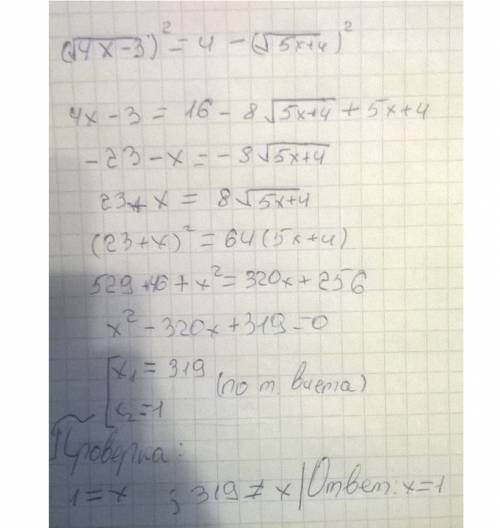 (√4x-3)² = 4 - (√5x+4)²
4x - 3 = 16 - 8√5x+4 + 5x+4
-23 - x = -8√5x+4
23 + x = 8√5x+4
(23+x)² = 64(5x+4)
529 +46 + x² = 320x + 256
x² - 320x + 319 = 0
[x₁ = 319
x₂ = 1 (по т. Виета)
Проверка:
1 = x ; 319 ≠ x | Ответ: x = 1